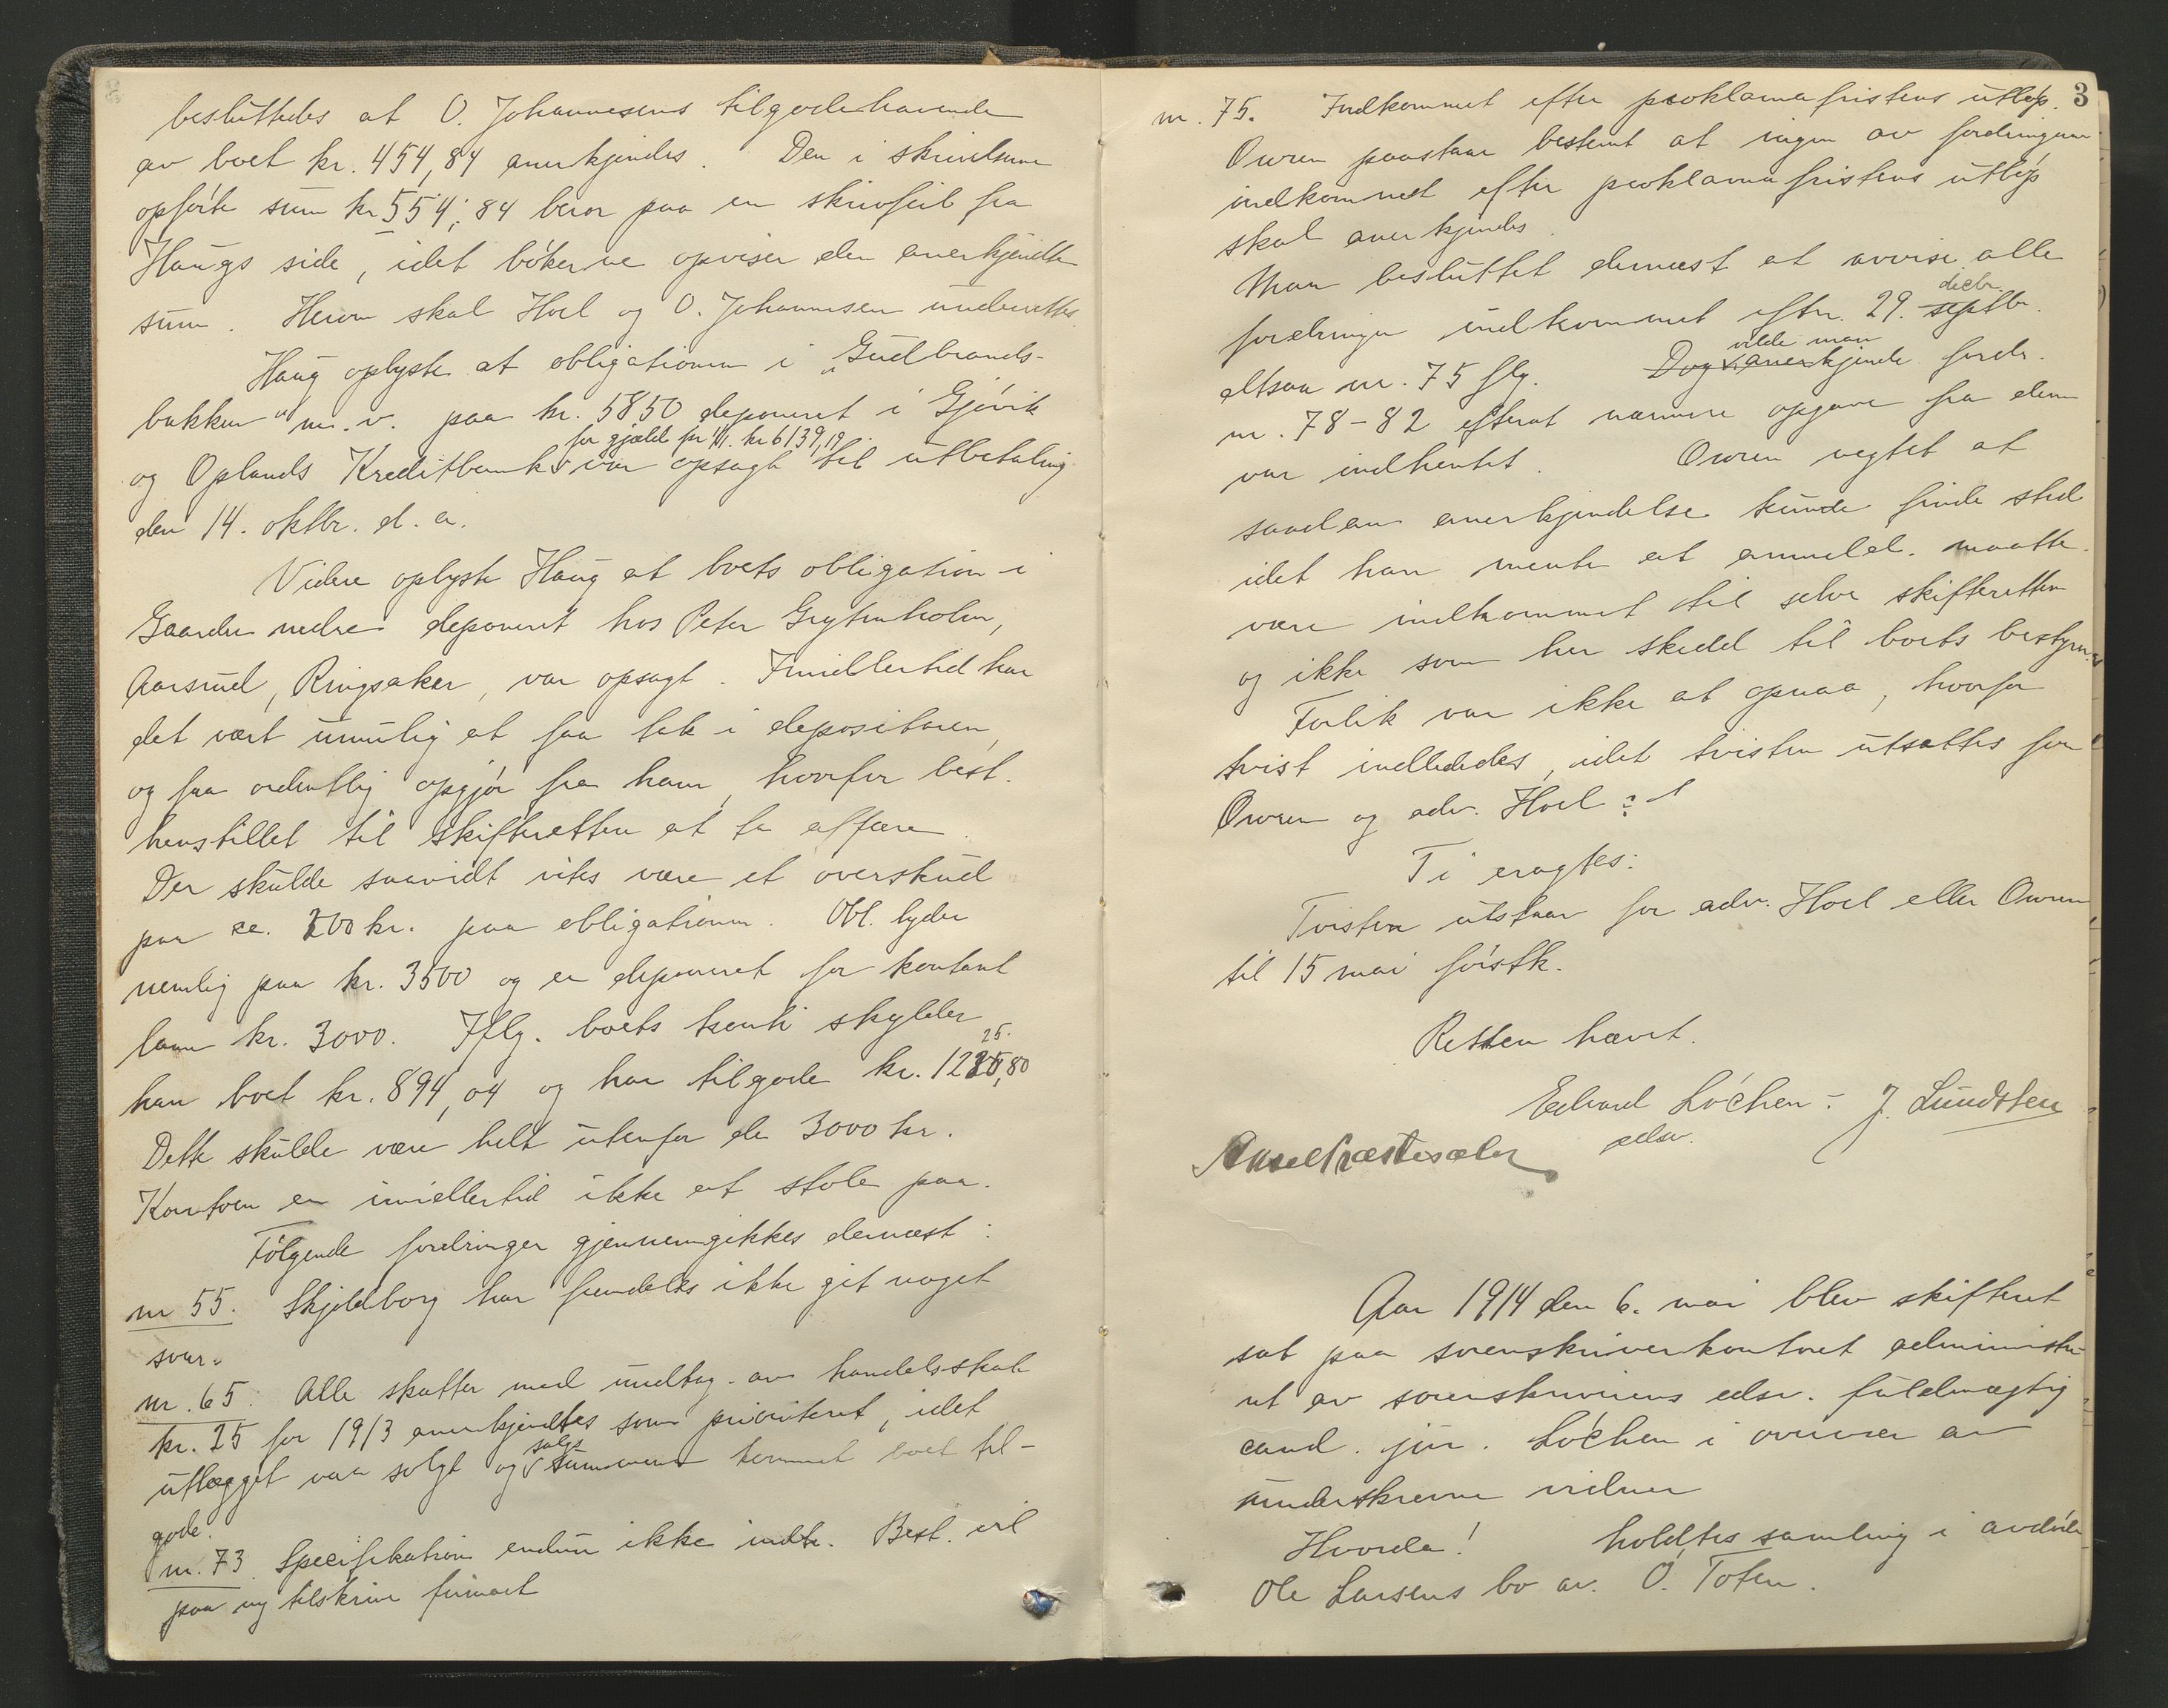 besluttedes at O. Johannesens tilgodehavende
av boet kr. 454,84 anerkjendes. Den i skrivelsene
opförte sum kr 554,84 beror paa en skrivfeil fra
Haugs side, idet bökerne opviser den anerkjendte
sum. Herom skal Hoel og O. Johannesen underrettes.
Haug oplyste at obligationen i „Gudbrands-
bakken" m. v. paa kr. 5850 deponeret i Gjövik
for gjæld pr 1/1. kr 6139,19
og Oplands Kreditbank var opsagt til utbetaling
den 14. oktbr. d. a.
Videre oplyste Haug at boets obligation i
Gaarder nedre deponeret hos Peter Grytenholm,
Aarsrud, Ringsaker, var opsagt. Imidlertid har
det vært umulig at faa tak i depositaren,
og faa ordentlig opgjör fra ham, hvorfor best.
henstillet til skifteretten at ta affære.
Der skulde saavidt vites være et overskud
paa ca. 200 kr. paa obligationen. Obl. lyder
nemlig paa kr. 3500 og er deponeret for kontant
laan kr. 3000. Iflg. boets konti skylder
25.
han boet kr. 894,04 og har tilgode kr. 1225,80
Dette skulde være helt utenfor de 3000 kr.
Kontoen er imidlertid ikke at stole paa.
Fölgende fordringer gjennemgikkes dernæst:
nr 55. Skjeldborg har fremdeles ikke git noget
svar.
nr. 65. Alle skatter med undtag. av handelsskat
kr. 25 for 1913 anerkjendtes som prioritert, idet
salgs
utlægget var solgt og summen kommet boet til-
gode.
nr. 73. Specifikation endnu ikke indk. Best. vil
paa ny tilskrive firmaet
3
nr. 75. Indkommet efter proklamafristens utlöp.
Owren paastaar bestemt at ingen av fordringene
indkommet efter proklamafristens utlöp
skal anerkjendes.
Man besluttet dernæst at avvise alle
decbr.
fordringer indkommet efter 29. septbr.
vilde man
altsaa nr. 75 flg. Dog anerkjende fordr.
nr. 78-82 efterat nærmere opgave fra dem
var indhentet. Owren negtet at
saadan anerkjendelse kunde finde sted
idet han mente at anmeld. maatte
være indkommet til selve skifteretten
og ikke som her skedd til boets bestyrer.
Forlik var ikke at opnaa, hvorfor
tvist indlededes, idet tvisten utsattes for
Owren og adv. Hoel
Ti eragtes:
Tvisten utstaar for adv. Hoel eller Owren
til 15 mai förstk.
Retten hævet.
Edvard Löchen. J. Lundsten
edsv.
Aksel Præstesæter
Aar 1914 den 6. mai blev skifteret
sat paa sorenskriverkontoret administre-
ret av sorenskriverens edsv. fuldmægtig
cand. jur. Löchen i overvær av
underskrevne vidner
Hvorda! holdtes samling i avdöde
Ole Larsens bo av. Ö. Toten.